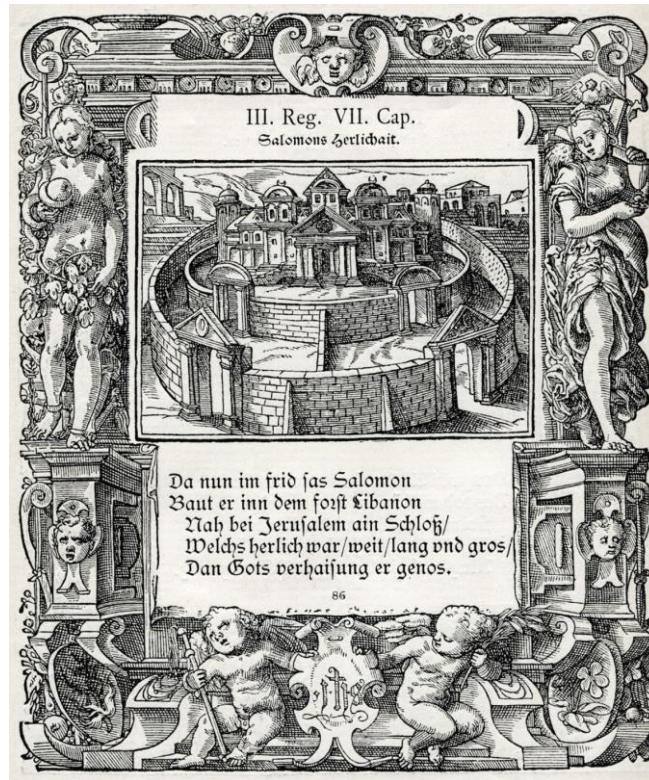 III. Reg. VII. Cap.
Salomons Herlichait.
Da nun im frid sas Salomon
Baut er inn dem forst Libanon
Nah bei Jerusalem ain Schloß/
Welchs herlich war/weit/lang vnd gros/
Dan Gots verhaisung er genos.
86